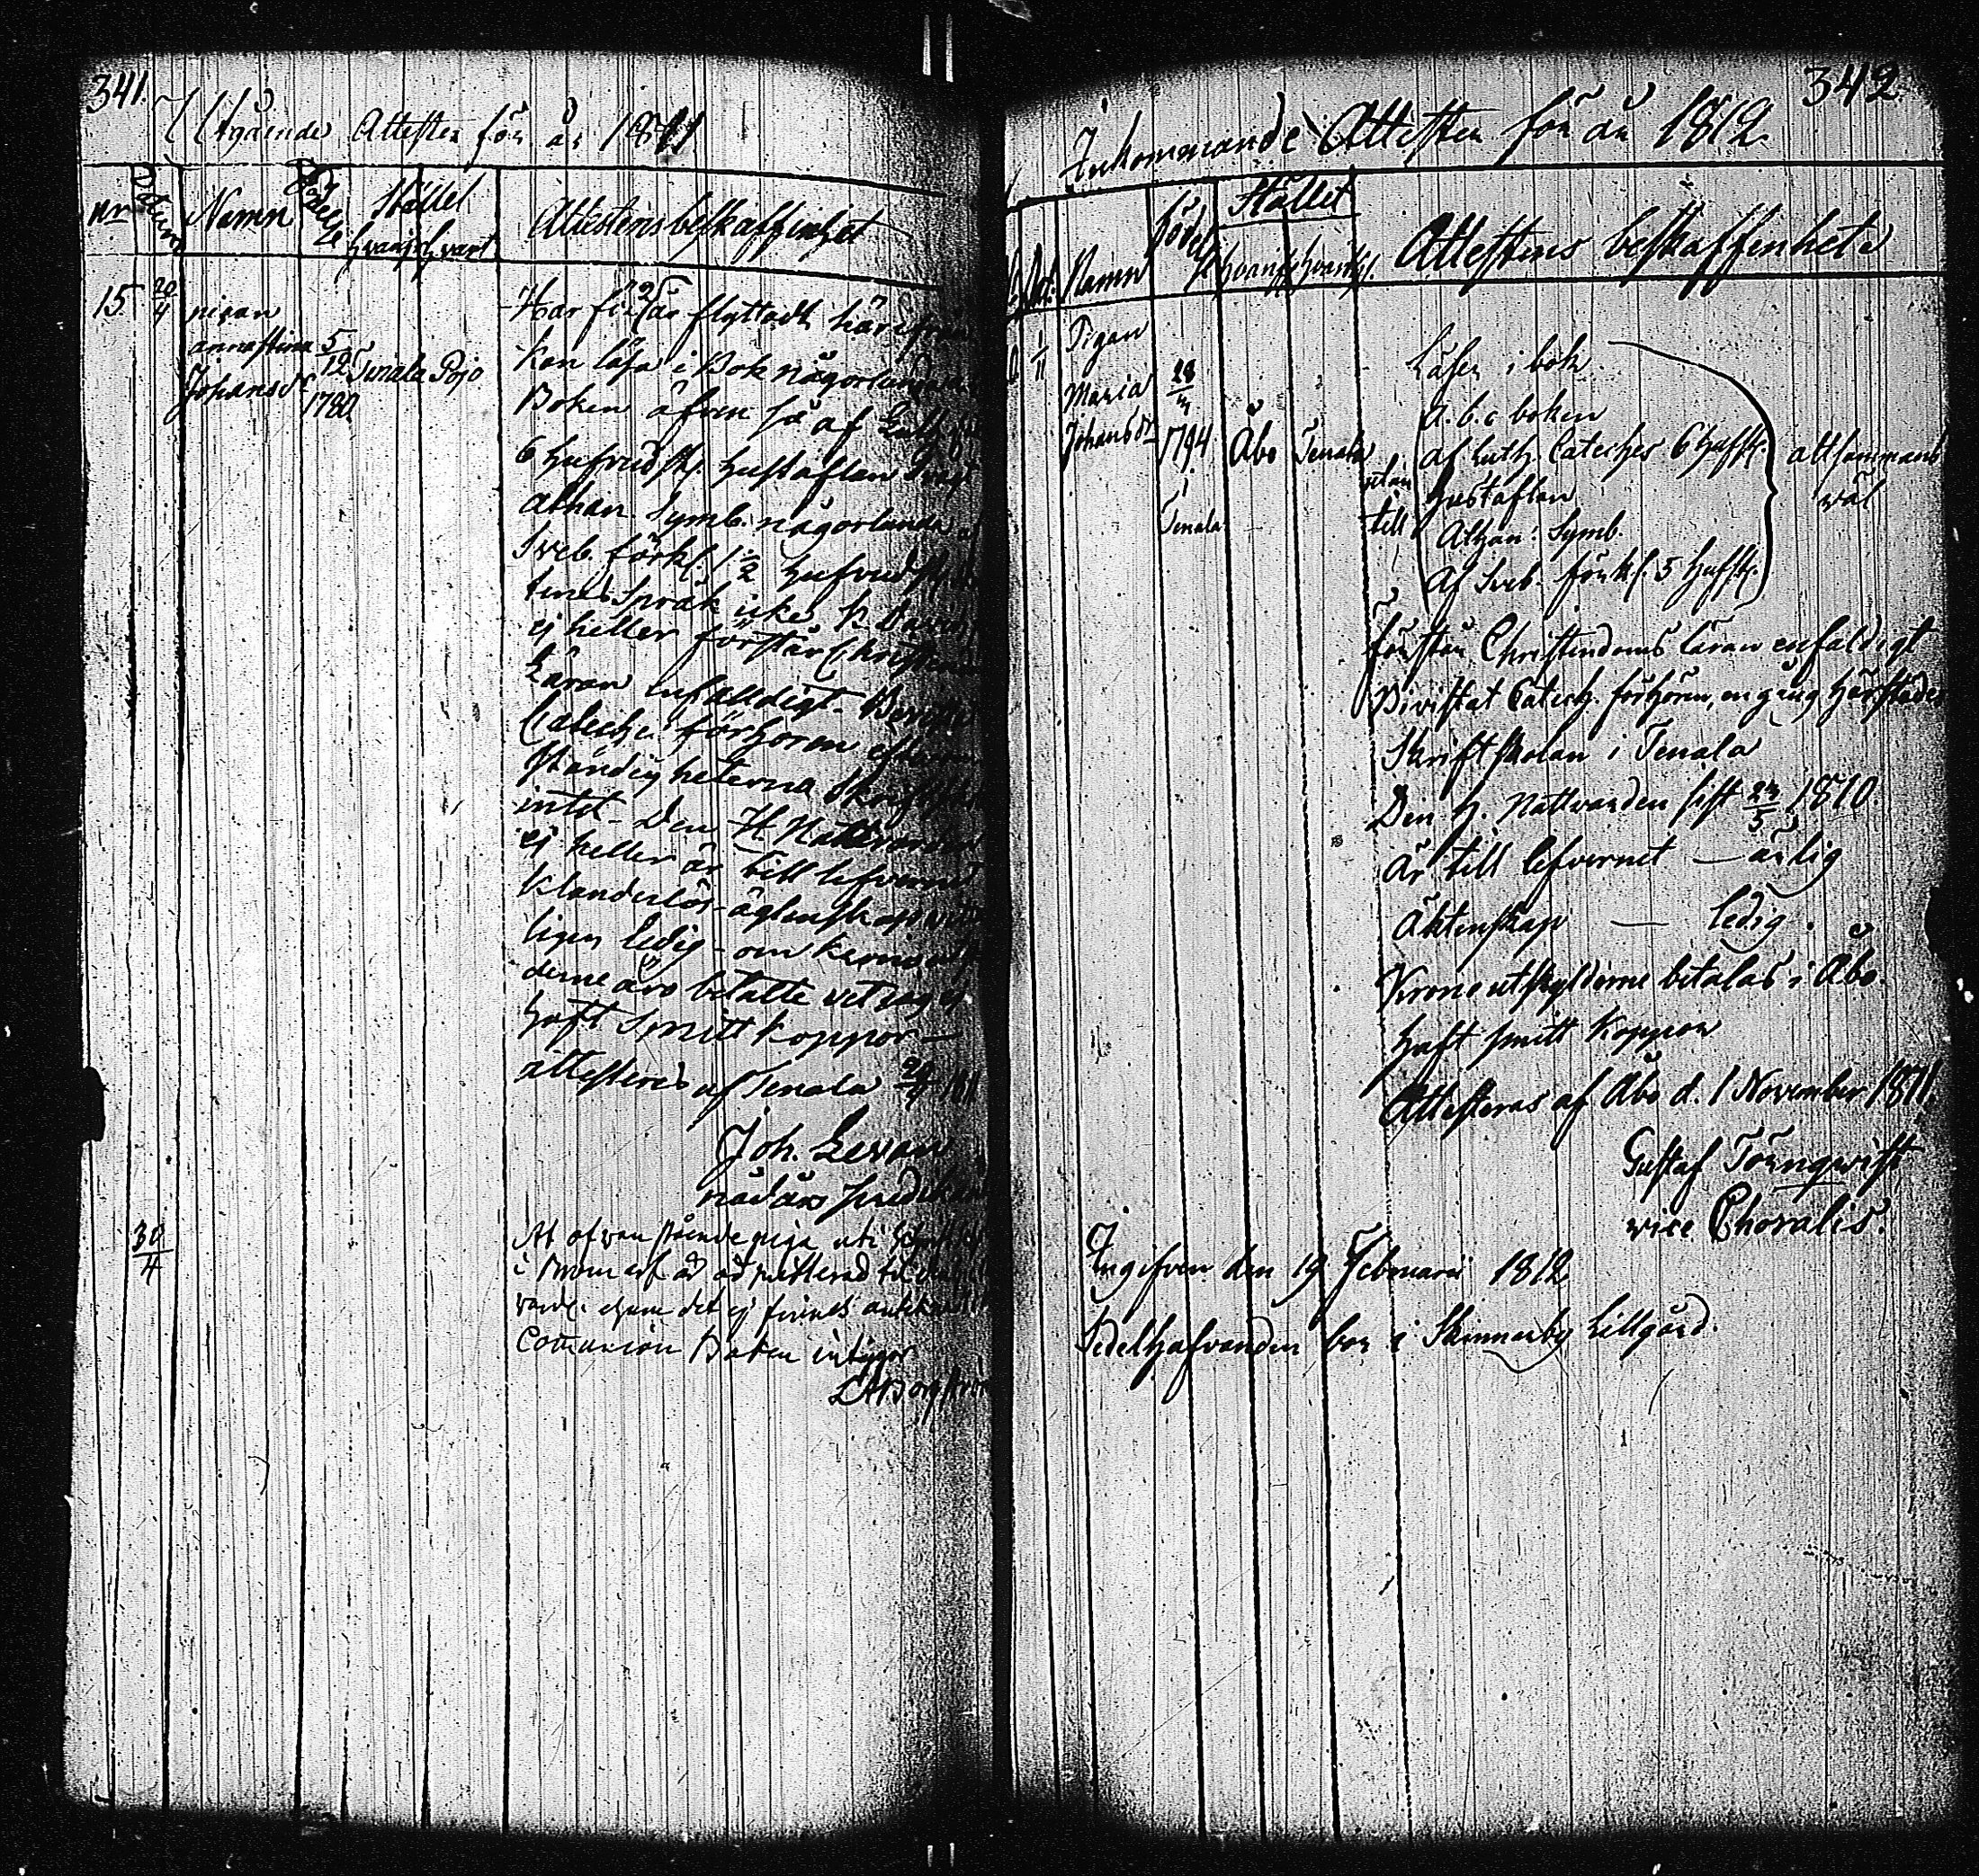 341.
Utgående Attester för år 1811
nr
Datum
Namn
Födelse
Stället
hvarifr.
hvart
Attestens beskaffenhet
15
20/4
pigan
annastina
Johansdr
5/12
1780
Tenala
Pojo
Har för 2 år flyttadt härifrån
kan läsa i Bok någorlunda
Boken äfven så af Luth.
6 hufvudst. hustaflan
athan. Symb. någorlunda
Sveb. förkl. 1 1/2 hufvudst.
Språk icke K. Davids
ej heller förstår Christen
Läran enfalldigt - Bevistat
Cateche. förhören efter
ständigheterna Skriftskolan
intet - Den H. Nattvarden
ej heller är till lefvernet
klanderlös - ägtenskaps
ligen ledig - om
derne äro betalte vet jag ej
haft Smittkoppor -
attesteras af Tenala 20/4 181
Joh. Levan
nådårs predikant
30/4
At ofvanstående piga uti
i Bromarf är admitterad til
det ej finnes antek
Comunion Boken intygar
342
Inkommande Attester för år 1812
Dat:
Namn
Födelse
Stället
hvarifr.
hvart
Attestens beskaffenhet
1/11
Pigan
Maria
Johansdr
28
1794
Tenala
Åbo
Tenala
Läser i bok
a.b.c boken
af Luth. Cateches 6 hufst.
allsammans
wäl
utan
till
hustaflan
Athan: Symb.
Af Sveb. förkl. 5 hufst.
förstår Christendoms läran enfaldigt
Bivistat Catech. förhören, en gång härstädes
Skriftskolan i Tenala
Den H. Nattvarden sist 27/5 1810
Är till lefvernet — ärlig
Äktenskap — ledig.
Krono utskylderne betalas i Åbo.
haft smitt koppor
Attesteras af Åbo d. 1 November 1811.
Gustaf Törnqwist
vice Choralis.
Ingifven den 19 Februarii 1812
Sedelhafvanden bor i Skinnarby Lillgård.